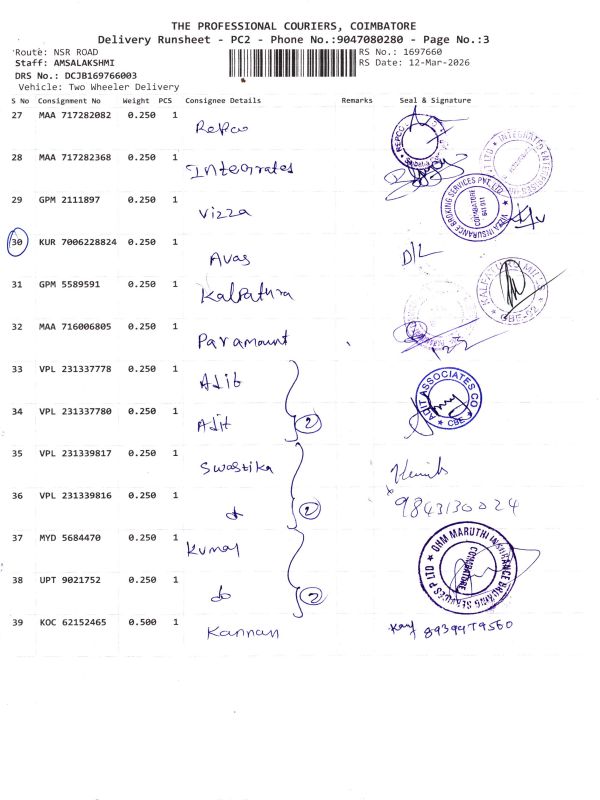 THE PROFESSIONAL COURIERS, COIMBATORE
Delivery Runsheet - PC2 - Phone No.:9047080280 - Page No.:3
Route: NSR ROAD
RS No.: 1697660
Staff: AMSALAKSHMI
RS Date: 12-Mar-2026
DRS No.: DCJB169766003
Vehicle: Two Wheeler Delivery
S No Consignment No Weight PCS Consignee Details Remarks Seal & Signature
27 MAA 717282082 0.250 1 Repco
REPCO
28 MAA 717282368 0.250 1 Integrates
INTEGRATED ENTERPRISES
29 GPM 2111897 0.250 1 Vizza
VIZZA INSURANCE BROKING SERVICES PVT. LTD
COIMBATORE
641 011
30 KUR 7006228824 0.250 1 Avas D/L
31 GPM 5589591 0.250 1 Kalpathra
32 MAA 716006805 0.250 1 Paramount
33 VPL 231337778 0.250 1 Adit
ADIT ASSOCIATES CO
CBE
34 VPL 231337780 0.250 1 Adit 2
35 VPL 231339817 0.250 1 Swastika
36 VPL 231339816 0.250 1 do 2 9843130024
37 MYD 5684470 0.250 1 Kumar
OHM MARUTHI INSURANCE BROKING SERVICES P LTD
COIMBATORE
38 UPT 9021752 0.250 1 do 2
39 KOC 62152465 0.500 1 Kannan 8939479560